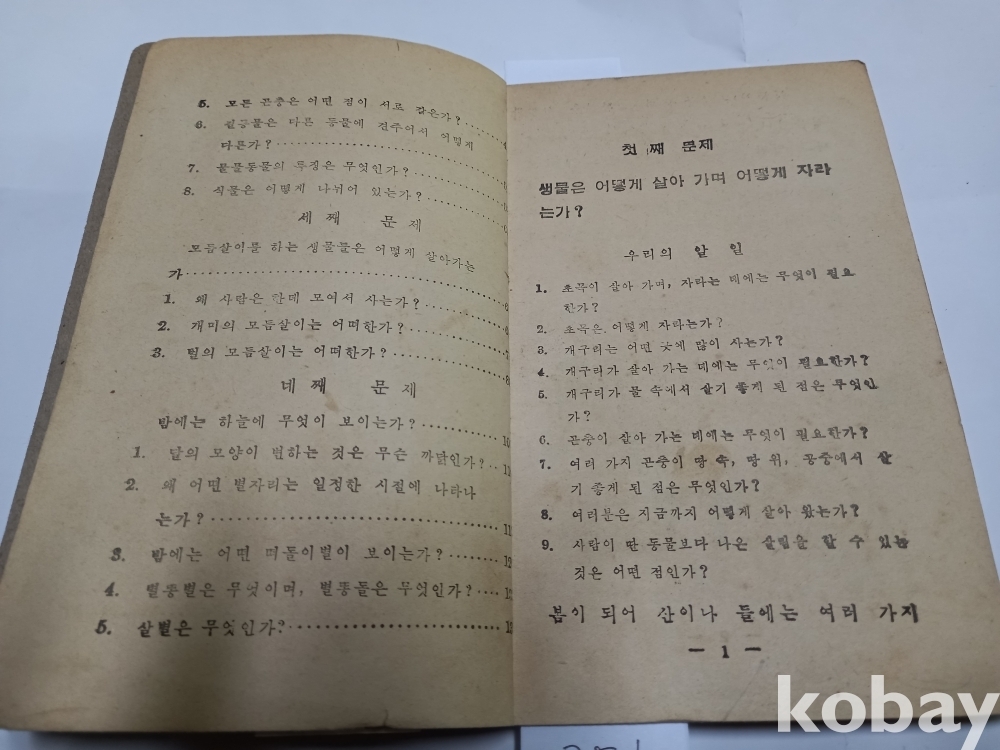 5. 모든 곤충은 어떤 점이 서로 같은가?
6. 길등물은 다른 동물에 견주어서 어떻게
다른가?
7. 물물동물의 특징은 무엇인가?
8. 식물은 어떻게 나뉘어 있는가?
세 째 문 제
모듬살이를 하는 생물들은 어떻게 살아가는
가
1. 왜 사람은 한데 모여서 사는가?
2. 개미의 모듬살이는 어떠한가?
3. 벌의 모듬살이는 어떠한가?
네 째 문 제
밤에는 하늘에 무엇이 보이는가?
1. 달의 모양이 변하는 것은 무슨 까닭인가?
2. 왜 어떤 별자리는 일정한 시절에 나타나
는가?
3. 밤에는 어떤 떠돌이별이 보이는가?
4. 별똥별은 무엇이며, 별똥돌은 무엇인가?
5. 살별은 무엇인가?
첫 째 문 제
생물은 어떻게 살아 가며 어떻게 자라
는가?
우리의 할 일
1. 초목이 살아 가며, 자라는 데에는 무엇이 필요
한가?
2. 초목은 어떻게 자라는가?
3. 개구리는 어떤 곳에 많이 사는가?
4. 개구리가 살아 가는 데에는 무엇이 필요한가?
5. 개구리가 물 속에서 살기 좋게 된 점은 무엇인
가?
6. 곤충이 살아 가는 데에는 무엇이 필요한가?
7. 여러 가지 곤충이 땅 속, 땅 위, 공중에서 살
기 좋게 된 점은 무엇인가?
8. 여러분은 지금까지 어떻게 살아 왔는가?
9. 사람이 딴 동물보다 나은 살림을 할 수 있는
것은 어떤 점인가?
봄이 되어 산이나 들에는 여러 가지
— 1 —
kobay